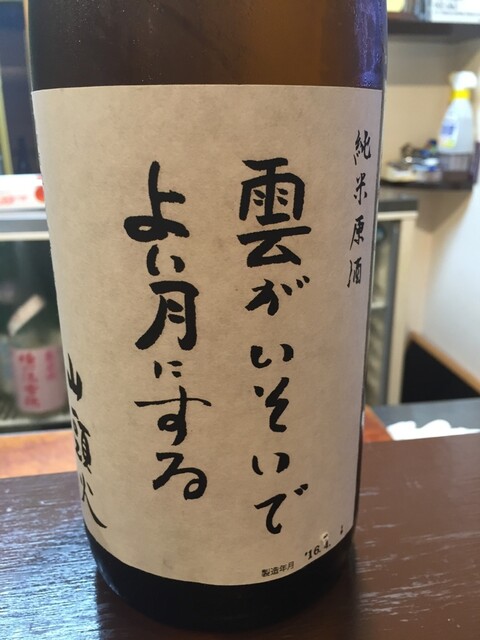 純米原酒
雲がいそいで
よい月にする
山頭火
製造年月 '16.4.